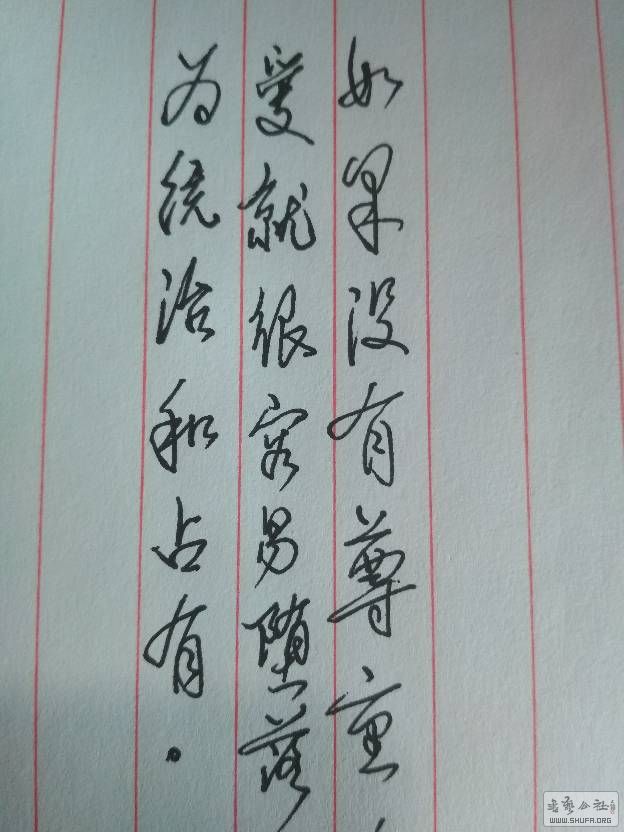 如果没有尊重,
爱就很容易堕落
为统治和占有。
WWW.SHUFA.ORG